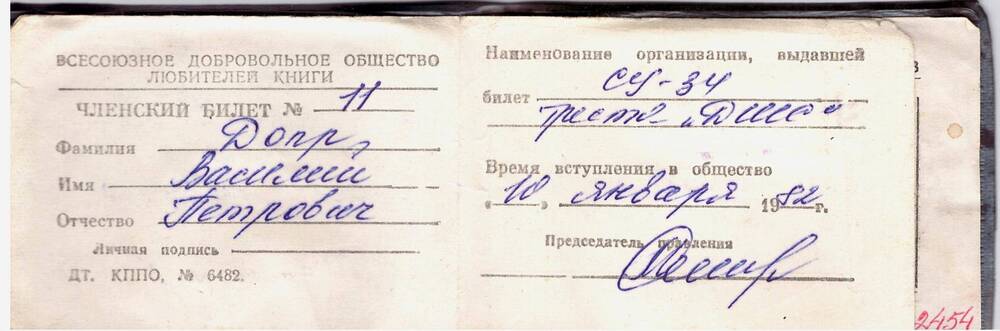 ВСЕСОЮЗНОЕ ДОБРОВОЛЬНОЕ ОБЩЕСТВО
ЛЮБИТЕЛЕЙ КНИГИ
ЧЛЕНСКИЙ БИЛЕТ № 11
Фамилия Допр
Имя Василий
Отчество Петрович
Личная подпись
ДТ. КППО, № 6482.
Наименование организации, выдавшей
билет СУ-34
треста
Время вступления в общество
«10» января 1982 г.
Председатель правления
2454